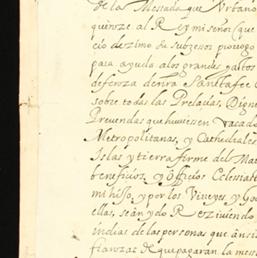 de la Mesada que Urbano
quinze al Rey mi señor (que
cio dezimo de subzesos prorrogo
para ayuda a los grandes gastos
defenza de nra Santa fee C
sobre todas las Prelacias, Digni
Prevendas que huviesen Vacado
Metropolitanas, y Cathedrales
Islas y tierra firme del Mar
beneficios, y Officios Eclesiasti
mi hijo, y por los Virreyes y Gov
ellas, sean ydo Reziviendo
indias de las personas que ansi
fianzas de que pagaran la messa